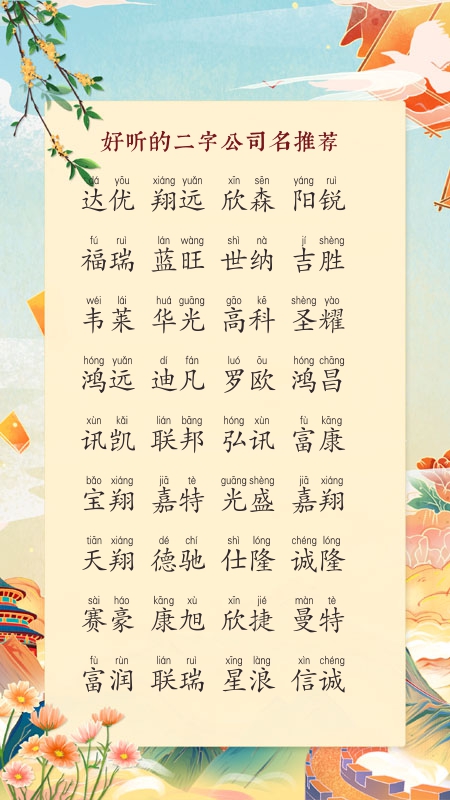 好听的二字公司名推荐
dá yōu xiáng yuǎn xīn sēn yáng ruì
达优 翔远 欣森 阳锐
fú ruì lán wàng shì nà jí shèng
福瑞 蓝旺 世纳 吉胜
wéi lái huá guāng gāo kē shèng yào
韦莱 华光 高科 圣耀
hóng yuǎn dí fán luó ōu hóng chāng
鸿远 迪凡 罗欧 鸿昌
xùn kǎi lián bāng hóng xùn fù kāng
讯凯 联邦 弘讯 富康
bǎo xiáng jiā tè guāng shèng jiā xiáng
宝翔 嘉特 光盛 嘉翔
tiān xiáng dé chí shì lóng chéng lóng
天翔 德驰 仕隆 诚隆
sài háo kāng xù xīn jié màn tè
赛豪 康旭 欣捷 曼特
fù rùn lián ruì xīng làng xìn chéng
富润 联瑞 星浪 信诚